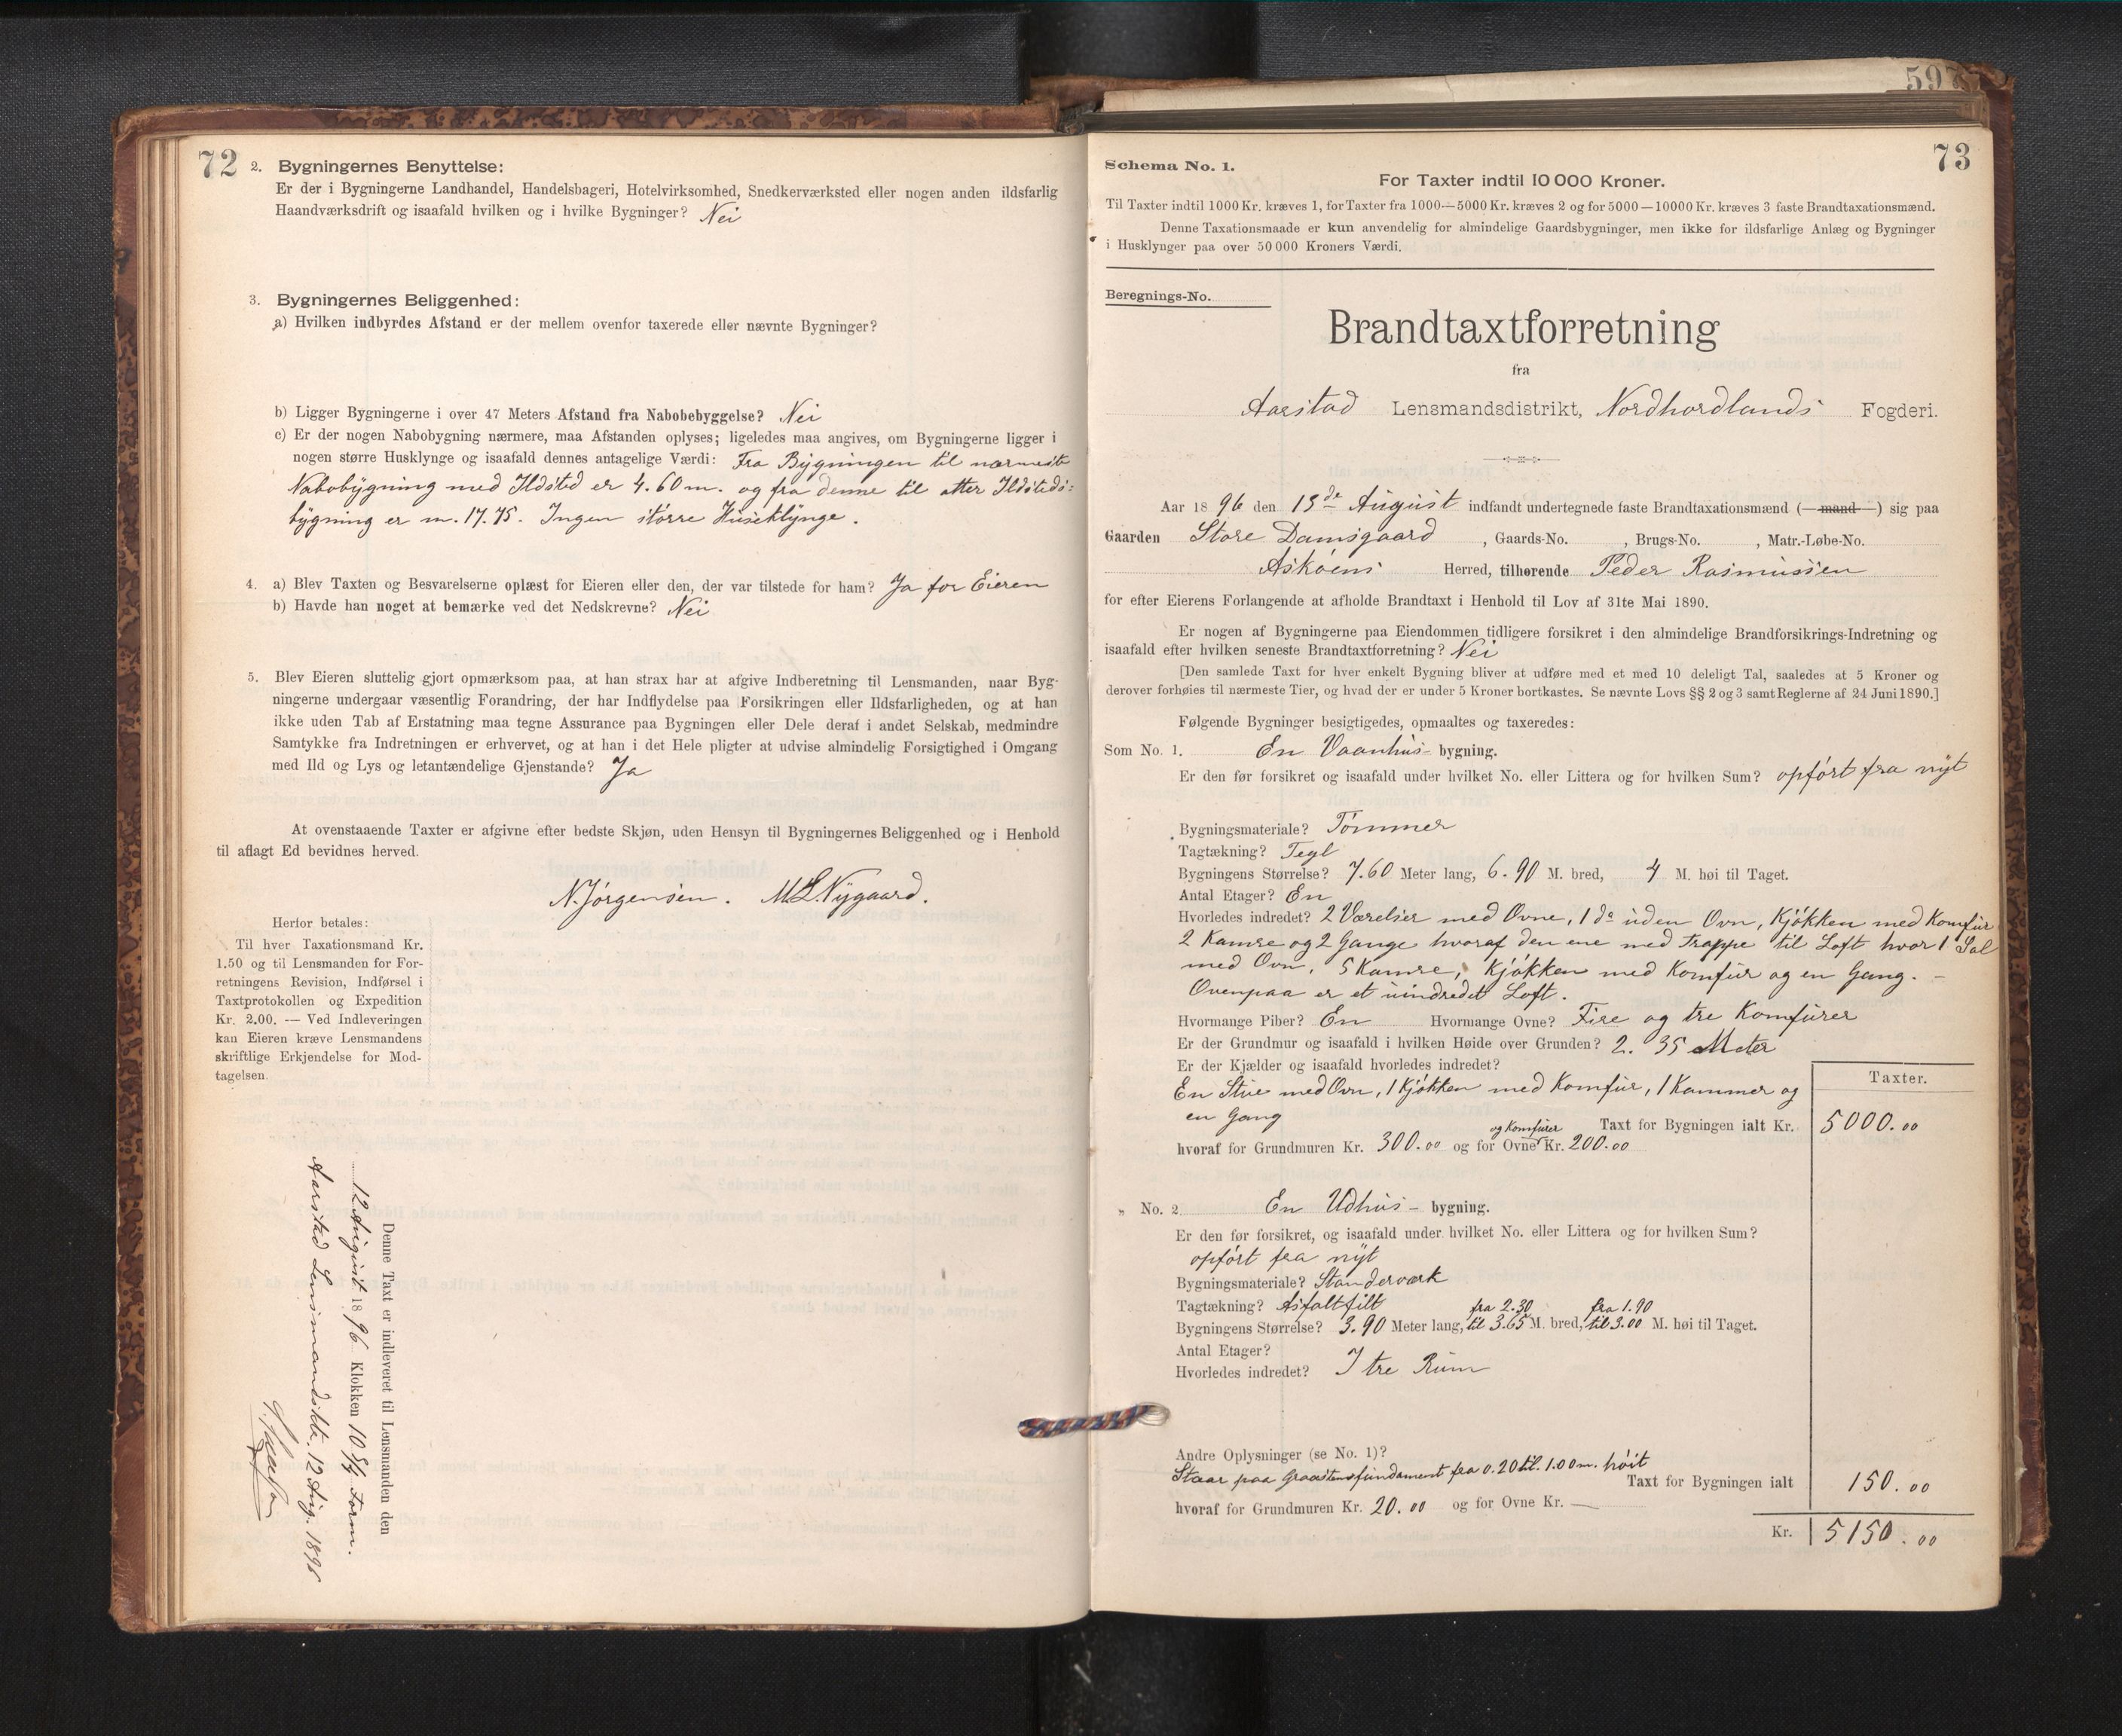 72
2. Bygningernes Benyttelse:
Er der i Bygningerne Landhandel, Handelsbageri, Hotelvirksomhed, Snedkerværksted eller nogen anden ildsfarlig
Haandværksdrift og isaafald hvilken og i hvilke Bygninger? Nei
3. Bygningernes Beliggenhed:
a) Hvilken indbyrdes Afstand er der mellem ovenfor taxerede eller nævnte Bygninger?
b) Ligger Bygningerne i over 47 Meters Afstand fra Nabobebyggelse? Nei
c) Er der nogen Nabobygning nærmere, maa Afstanden oplyses; ligeledes maa angives, om Bygningerne ligger i
nogen større Husklynge og isaafald dennes antagelige Værdi: Fra Bygningen til nærmeste
Nabobygning med Ildsted er 4.60 m. og fra denne til atter Ildsteds-
bygning er m. 17.75. Ingen større Huseklynge.
4. a) Blev Taxten og Besvarelserne oplæst for Eieren eller den, der var tilstede for ham? Ja for Eieren
b) Havde han noget at bemærke ved det Nedskrevne? Nei
5. Blev Eieren sluttelig gjort opmærksom paa, at han strax har at afgive Indberetning til Lensmanden, naar Byg-
ningerne undergaar væsentlig Forandring, der har Indflydelse paa Forsikringen eller Ildsfarligheden, og at han
ikke uden Tab af Erstatning maa tegne Assurance paa Bygningen eller Dele deraf i andet Selskab, medmindre
Samtykke fra Indretningen er erhvervet, og at han i det Hele pligter at udvise almindelig Forsigtighed i Omgang
med Ild og Lys og letantændelige Gjenstande? Ja
At ovenstaaende Taxter er afgivne efter bedste Skjøn, uden Hensyn til Bygningernes Beliggenhed og i Henhold
til aflagt Ed bevidnes herved.
N. Jørgensen. M. L. Nygaard.
Herfor betales:
Til hver Taxationsmand Kr.
1.50 og til Lensmanden for For-
retningens Revision, Indførsel i
Taxtprotokollen og Expedition
Kr. 2.00. — Ved Indleveringen
kan Eieren kræve Lensmandens
skriftlige Erkjendelse for Mod-
tagelsen.
Denne Taxt er indleveret til Lensmanden den
12 August 1896 Klokken 10 3/4 Form.
Aarstad Lensmandsikt. 12 Aug. 1896
597
73
Schema No. 1.
For Taxter indtil 10 000 Kroner.
Til Taxter indtil 1000 Kr. kræves 1, for Taxter fra 1000—5000 Kr. kræves 2 og for 5000—10000 Kr. kræves 3 faste Brandtaxationsmænd.
Denne Taxationsmaade er kun anvendelig for almindelige Gaardsbygninger, men ikke for ildsfarlige Anlæg og Bygninger
i Husklynger paa over 50 000 Kroners Værdi.
Beregnings-No.
Brandtaxtforretning
fra
Aarstad Lensmandsdistrikt, Nordhordlands Fogderi.
Aar 1896 den 13de August indfandt undertegnede faste Brandtaxationsmænd (—mand—) sig paa
Gaarden Store Damsgaard, Gaards-No. , Brugs-No. , Matr.-Løbe-No.
Askøens Herred, tilhørende Peder Rasmussen
for efter Eierens Forlangende at afholde Brandtaxt i Henhold til Lov af 31te Mai 1890.
Er nogen af Bygningerne paa Eiendommen tidligere forsikret i den almindelige Brandforsikrings-Indretning og
isaafald efter hvilken seneste Brandtaxtforretning? Nei
[Den samlede Taxt for hver enkelt Bygning bliver at udføre med et med 10 deleligt Tal, saaledes at 5 Kroner og
derover forhøies til nærmeste Tier, og hvad der er under 5 Kroner bortkastes. Se nævnte Lovs §§ 2 og 3 samt Reglerne af 24 Juni 1890.]
Følgende Bygninger besigtigedes, opmaaltes og taxeredes:
Som No. 1. En Vaanhus- bygning.
Er den før forsikret og isaafald under hvilket No. eller Littera og for hvilken Sum? opført fra nyt
Bygningsmateriale? Tømmer
Tagtækning? Tegl
Bygningens Størrelse? 7.60 Meter lang, 6.90 M. bred, 4 M. høi til Taget.
Antal Etager? En
Hvorledes indredet? 2 Værelser med Ovne, 1 do uden Ovn, Kjøkken med Komfur
2 Kamre og 2 Gange hvoraf den ene med Trappe til Loft hvor 1 Sal
med Ovn, 5 Kamre, Kjøkken med Komfur og en Gang. –
Ovenpaa er et uindredet Loft.
Hvormange Piber? En Hvormange Ovne? Fire og tre Komfurer
Er der Grundmur og isaafald i hvilken Høide over Grunden? 2. 35 Meter
Er der Kjælder og isaafald hvorledes indredet?
Taxter.
En Stue med Ovn, 1 Kjøkken med Komfur, 1 Kammer og
en Gang
Taxt for Bygningen ialt Kr. 5000.00
hvoraf for Grundmuren Kr. 300.00 og for Ovne og Komfurer Kr. 200.00
„ No. 2 En Udhus- bygning.
Er den før forsikret, og isaafald under hvilket No. eller Littera og for hvilken Sum?
opført fra nyt
Bygningsmateriale? Standerværk
Tagtækning? Asfaltfilt
fra 2.30 fra 1.90
Bygningens Størrelse? 3.90 Meter lang, til 3.65 M. bred, til 3.00 M. høi til Taget.
Antal Etager?
Hvorledes indredet? I tre Rum
Andre Oplysninger (se No. 1)?
Staar paa Graastensfundament fra 0.20 til 1.00 m. høit
Taxt for Bygningen ialt 150.00
hvoraf for Grundmuren Kr. 20.00 og for Ovne Kr. —
Kr. 5150.00